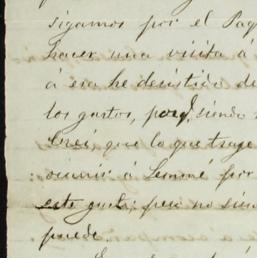 sigamos por el Paq
hacer una visita á
á esa he desistido de
los gastos, porq. siendo
Creí, que lo que trage
ocurrir á Lemmé por
este gasto; pero no sien
puede.